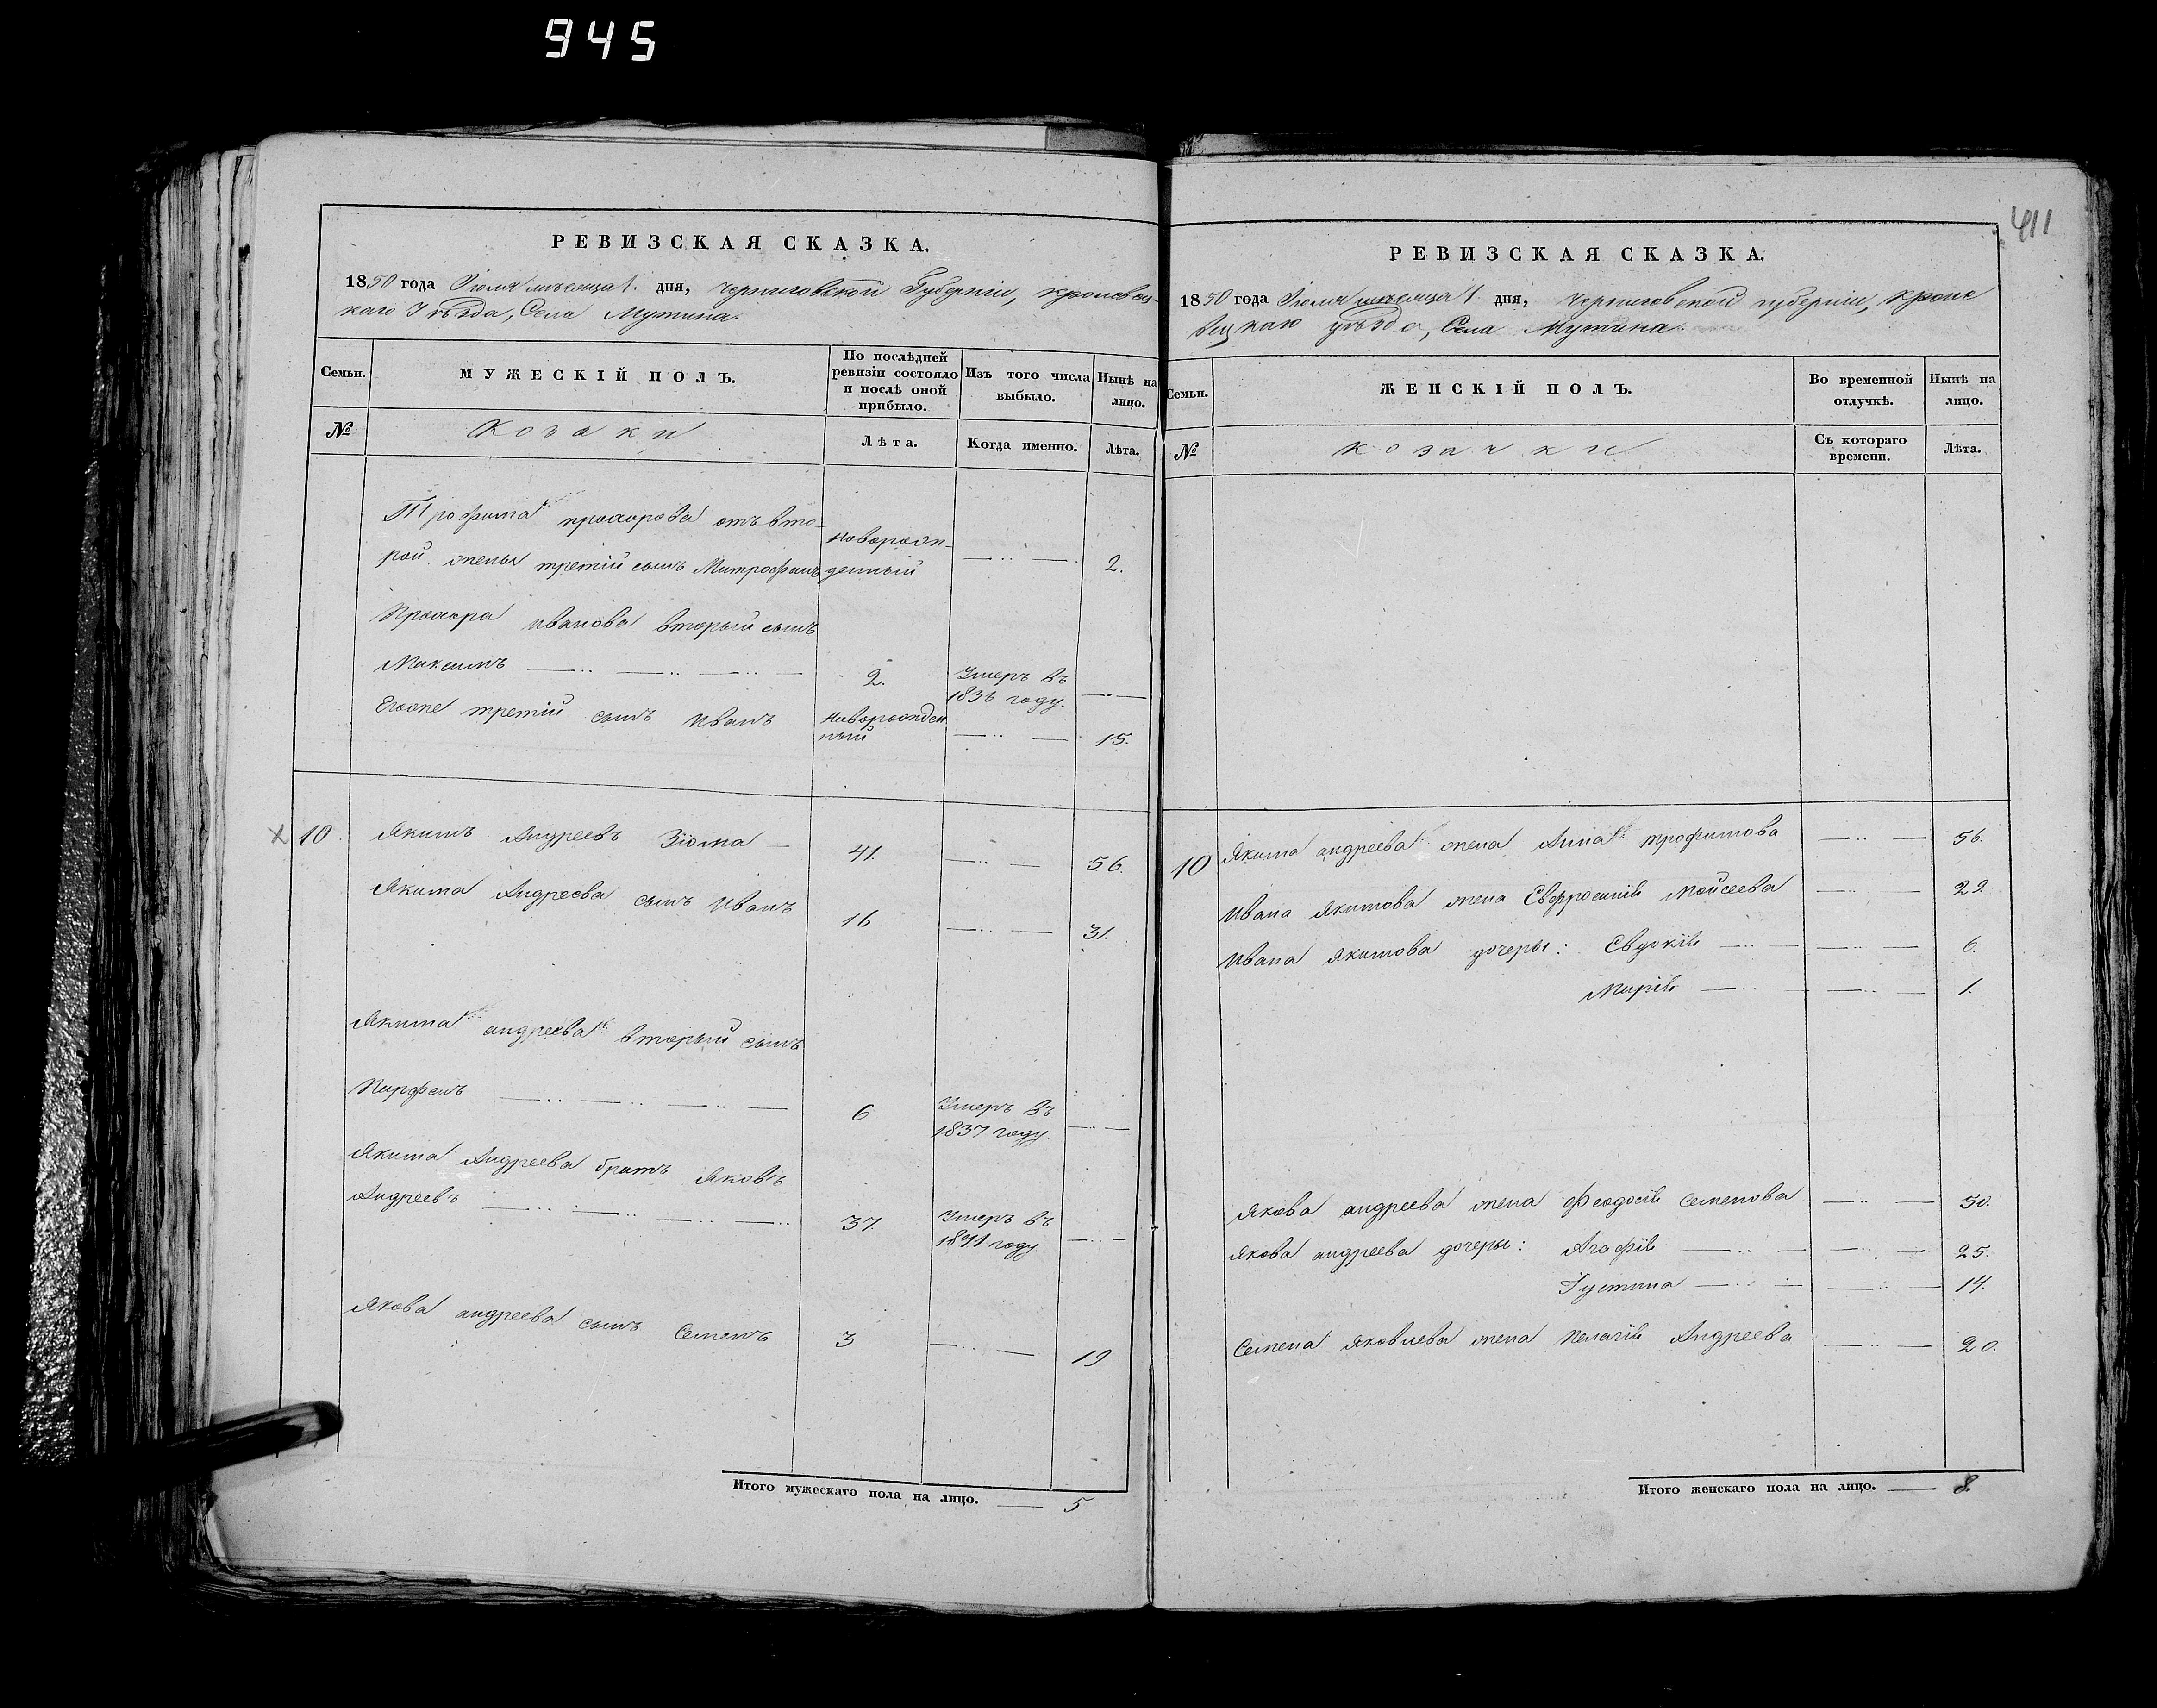 945
411
РЕВИЗСКАЯ СКАЗКА.
1850 года Іюля мѣсяца 1. дня, Черниговской Губерніи, Кролевец-
каго Уѣзда, Села Мутина.
Семьи.
МУЖЕСКІЙ ПОЛЪ.
По послѣдней
ревизіи состояло
и послѣ оной
прибыло.
Изъ того числа
выбыло.
Нынѣ на
лицо.
№
Козаки
Лѣта.
Когда именно.
Лѣта.
Трофима прохорова отъ вто-
рой жены третій сынъ Митрофанъ
новорож-
денный
2.
Прохора иванова вторый сынъ
Максимъ
2.
Умеръ въ
1836 году.
Егоже третій сынъ Иванъ
новорожден
ный
15.
10
Якимъ Андреевъ Зюма
41.
56.
Якима Андреева сынъ Иванъ
16
31.
Якима андреева вторый сынъ
Парфенъ
6
Умеръ въ
1837 году.
Якима Андреева братъ Яковъ
Андреевъ
37.
Умеръ въ
1841 году.
Якова андреева сынъ Семенъ
3
19
Итого мужескаго пола на лицо. 5
РЕВИЗСКАЯ СКАЗКА.
1850 года Іюля мѣсяца 1. дня, Черниговской губерніи, Кроле
вецкаго уѣзда, Села Мутина.
Семьи.
ЖЕНСКІЙ ПОЛЪ.
Во временной
отлучкѣ.
Нынѣ на
лицо.
№
козачки
Съ котораго
времени.
Лѣта.
10
Якима андреева жена Анна трофимова
56.
Ивана Якимова жена Евфросинія Мойсеева
29.
Ивана Якимова дочеры: Евдокія
6.
Марія
1.
Якова андреева жена Феодосія Семенова
50.
Якова андреева дочеры: Агафія
25.
Густина
14.
Семена Яковлева жена Пелагія Андреева
20.
Итого женскаго пола на лицо. 8.